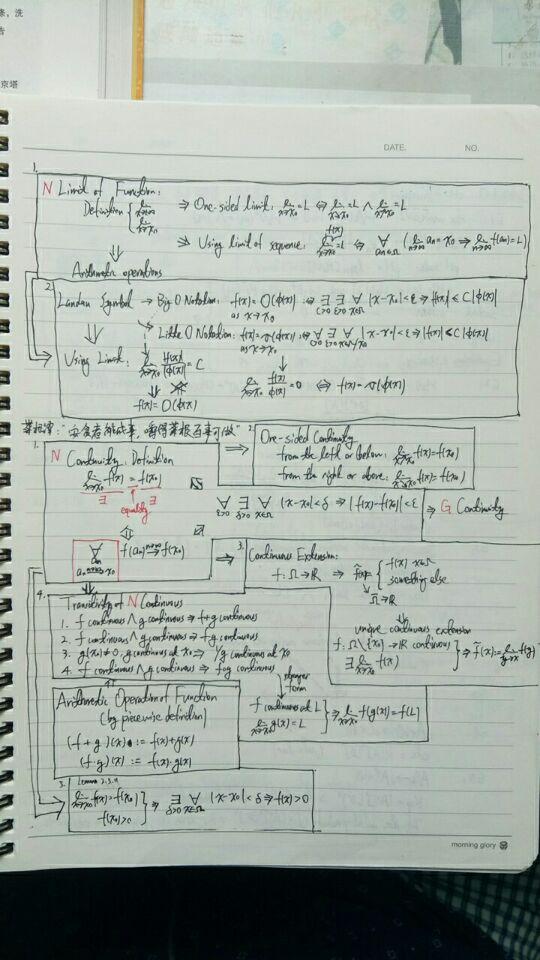 条，洗
告
京塔
DATE. NO.
1.
N Limit of Function:
Definition { lim x→∞ ⇒ One-sided limit: lim x→x₀ = L ⇔ lim x↘x₀ = L ∧ lim x↗x₀ = L
lim x→x₀
f(x)
⇒ Using limit of sequence: lim x→x₀ = L ⇔ ∀ an∈Ω ( lim n→∞ an = x₀ ⇒ lim n→∞ f(an) = L )
⇓
Arithmetic operations
2.
Landau Symbol → Big O Notation: f(x) = O(ϕ(x)) :⇔ ∃ C>0 ∃ ε>0 ∀ x∈Ω |x-x₀|<ε ⇒ |f(x)| ≤ C|ϕ(x)|
as x→x₀
Little O Notation: f(x) = o(ϕ(x)) :⇔ ∀ C>0 ∃ ε>0 ∀ x∈Ω\x₀ |x-x₀|<ε ⇒ |f(x)| ≤ C|ϕ(x)|
as x→x₀
Using Limit: lim x→x₀ |f(x)|/|ϕ(x)| = C
lim x→x₀ f(x)/ϕ(x) = 0 ⇔ f(x) = o(ϕ(x))
f(x) = O(ϕ(x))
菜根谭:
1.
N Continuity Definition ⇒
lim x→x₀ f(x) = f(x₀)
∃ equality ∃
2.
One-sided Continuity
from the left or below: lim x↗x₀ f(x) = f(x₀)
from the right or above: lim x↘x₀ f(x) = f(x₀)
∀ ε>0 ∃ δ>0 ∀ x∈Ω |x-x₀|<δ ⇒ |f(x)-f(x₀)|<ε ⇒ G Continuity
∀ an an n→∞→ x₀ f(an) n→∞→ f(x₀) ⇒
3.
Continuous Extension:
f: Ω → ℝ ⇒ f̃(x) = { f(x) x∈Ω
something else
Ω̃ → ℝ
unique continuous extension
f: Ω\{x₀} → ℝ continuous
∃ lim x→x₀ f(x) } ⇒ f̃(x) := lim y→x f(y)
4.
Transitivity of N Continuous
1. f continuous ∧ g continuous ⇒ f+g continuous
2. f continuous ∧ g continuous ⇒ f·g continuous
3. g(x₀)≠0, g continuous at x₀ ⇒ 1/g continuous at x₀
4. f continuous ∧ g continuous ⇒ f∘g continuous
stronger form
f continuous at L
lim x→x₀ g(x) = L } ⇒ lim x→x₀ f(g(x)) = f(L)
Arithmetic Operation of Function
(by piecewise definition)
(f+g)(x) := f(x)+g(x)
(f·g)(x) := f(x)·g(x)
3. Lemma 2.3.
lim x→x₀ f(x) = f(x₀)
f(x₀)>0 } ⇒ ∃ δ>0 ∀ x∈Ω |x-x₀|<δ ⇒ f(x)>0
morning glory